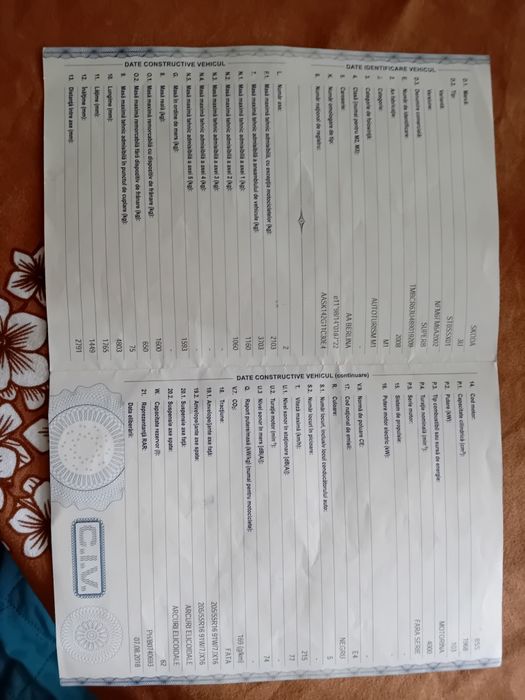 DATE IDENTIFICARE VEHICUL
D.1. Marcă: SKODA
D.2. Tip: 3U
Variantă: STBSSX01
Versiune: NFM6FM6A2002
D.3. Denumire comercială: SUPERB
E. Număr de identificare:
2. An fabricație: 2008
J. Categorie: M1
3. Categorie de folosință: AUTOTURISM M1
4. Clasă (numai pentru M2, M3): -
5. Caroserie: AA BERLINA
K. Număr omologare de tip:
6. Număr național de registru:
DATE CONSTRUCTIVE VEHICUL
L. Număr axe: 2
F.1. Masă maximă tehnic admisibilă, cu excepția motocicletelor (kg): 2103
7. Masă maximă tehnic admisibilă a ansamblului de vehicule (kg): 3703
N.1. Masă maximă tehnic admisibilă a axei 1 (kg): 1160
N.2. Masă maximă tehnic admisibilă a axei 2 (kg): 1060
N.3. Masă maximă tehnic admisibilă a axei 3 (kg): -
N.4. Masă maximă tehnic admisibilă a axei 4 (kg): -
N.5. Masă maximă tehnic admisibilă a axei 5 (kg): -
G. Masă în ordine de mers (kg): 1593
8. Masă reală (kg): -
O.1. Masă maximă remorcabilă cu dispozitiv de frânare (kg): 1600
O.2. Masă maximă remorcabilă fără dispozitiv de frânare (kg): 650
9. Masă maximă tehnic admisibilă în punctul de cuplare (kg): 75
10. Lungime (mm): 4803
11. Lățime (mm): 1765
12. Înălțime (mm): 1449
13. Distanță între axe (mm): 2791
14. Cod motor: BSS
P.1. Capacitate cilindrică (cm³): 1968
P.2. Putere (kW): 103
P.3. Tip combustibil sau sursă de energie: MOTORINA
P.4. Turație nominală (min⁻¹): 4000
P.5. Serie motor: FARA SERIE
15. Sistem de propulsie:
16. Putere motor electric (kW):
DATE CONSTRUCTIVE VEHICUL (continuare)
V.9. Normă de poluare CE: E4
17. Cod național de emisii:
R. Culoare: NEGRU
S.1. Număr locuri, inclusiv locul conducătorului auto: 5
S.2. Număr locuri în picioare: -
T. Viteză maximă (km/h): 215
U.1. Nivel sonor în staționare [dB(A)]: 77
U.2. Turație motor (min⁻¹):
U.3. Nivel sonor în mers [dB(A)]: 74
Q. Raport putere/masă (kW/kg) (numai pentru motociclete): -
V.7. CO₂: 169 (g/km)
18. Tracțiune: FATA
19.1. Anvelope/jante axe față: 205/55R16 91W/7JX16
19.2. Anvelope/jante axe spate: 205/55R16 91W/7JX16
20.1. Suspensie axe față: ARCURI ELICOIDALE
20.2. Suspensie axe spate: ARCURI ELICOIDALE
W. Capacitate rezervor (l): 62
21. Reprezentanță RAR:
Data eliberării: 07.08.2018
C.I.V.